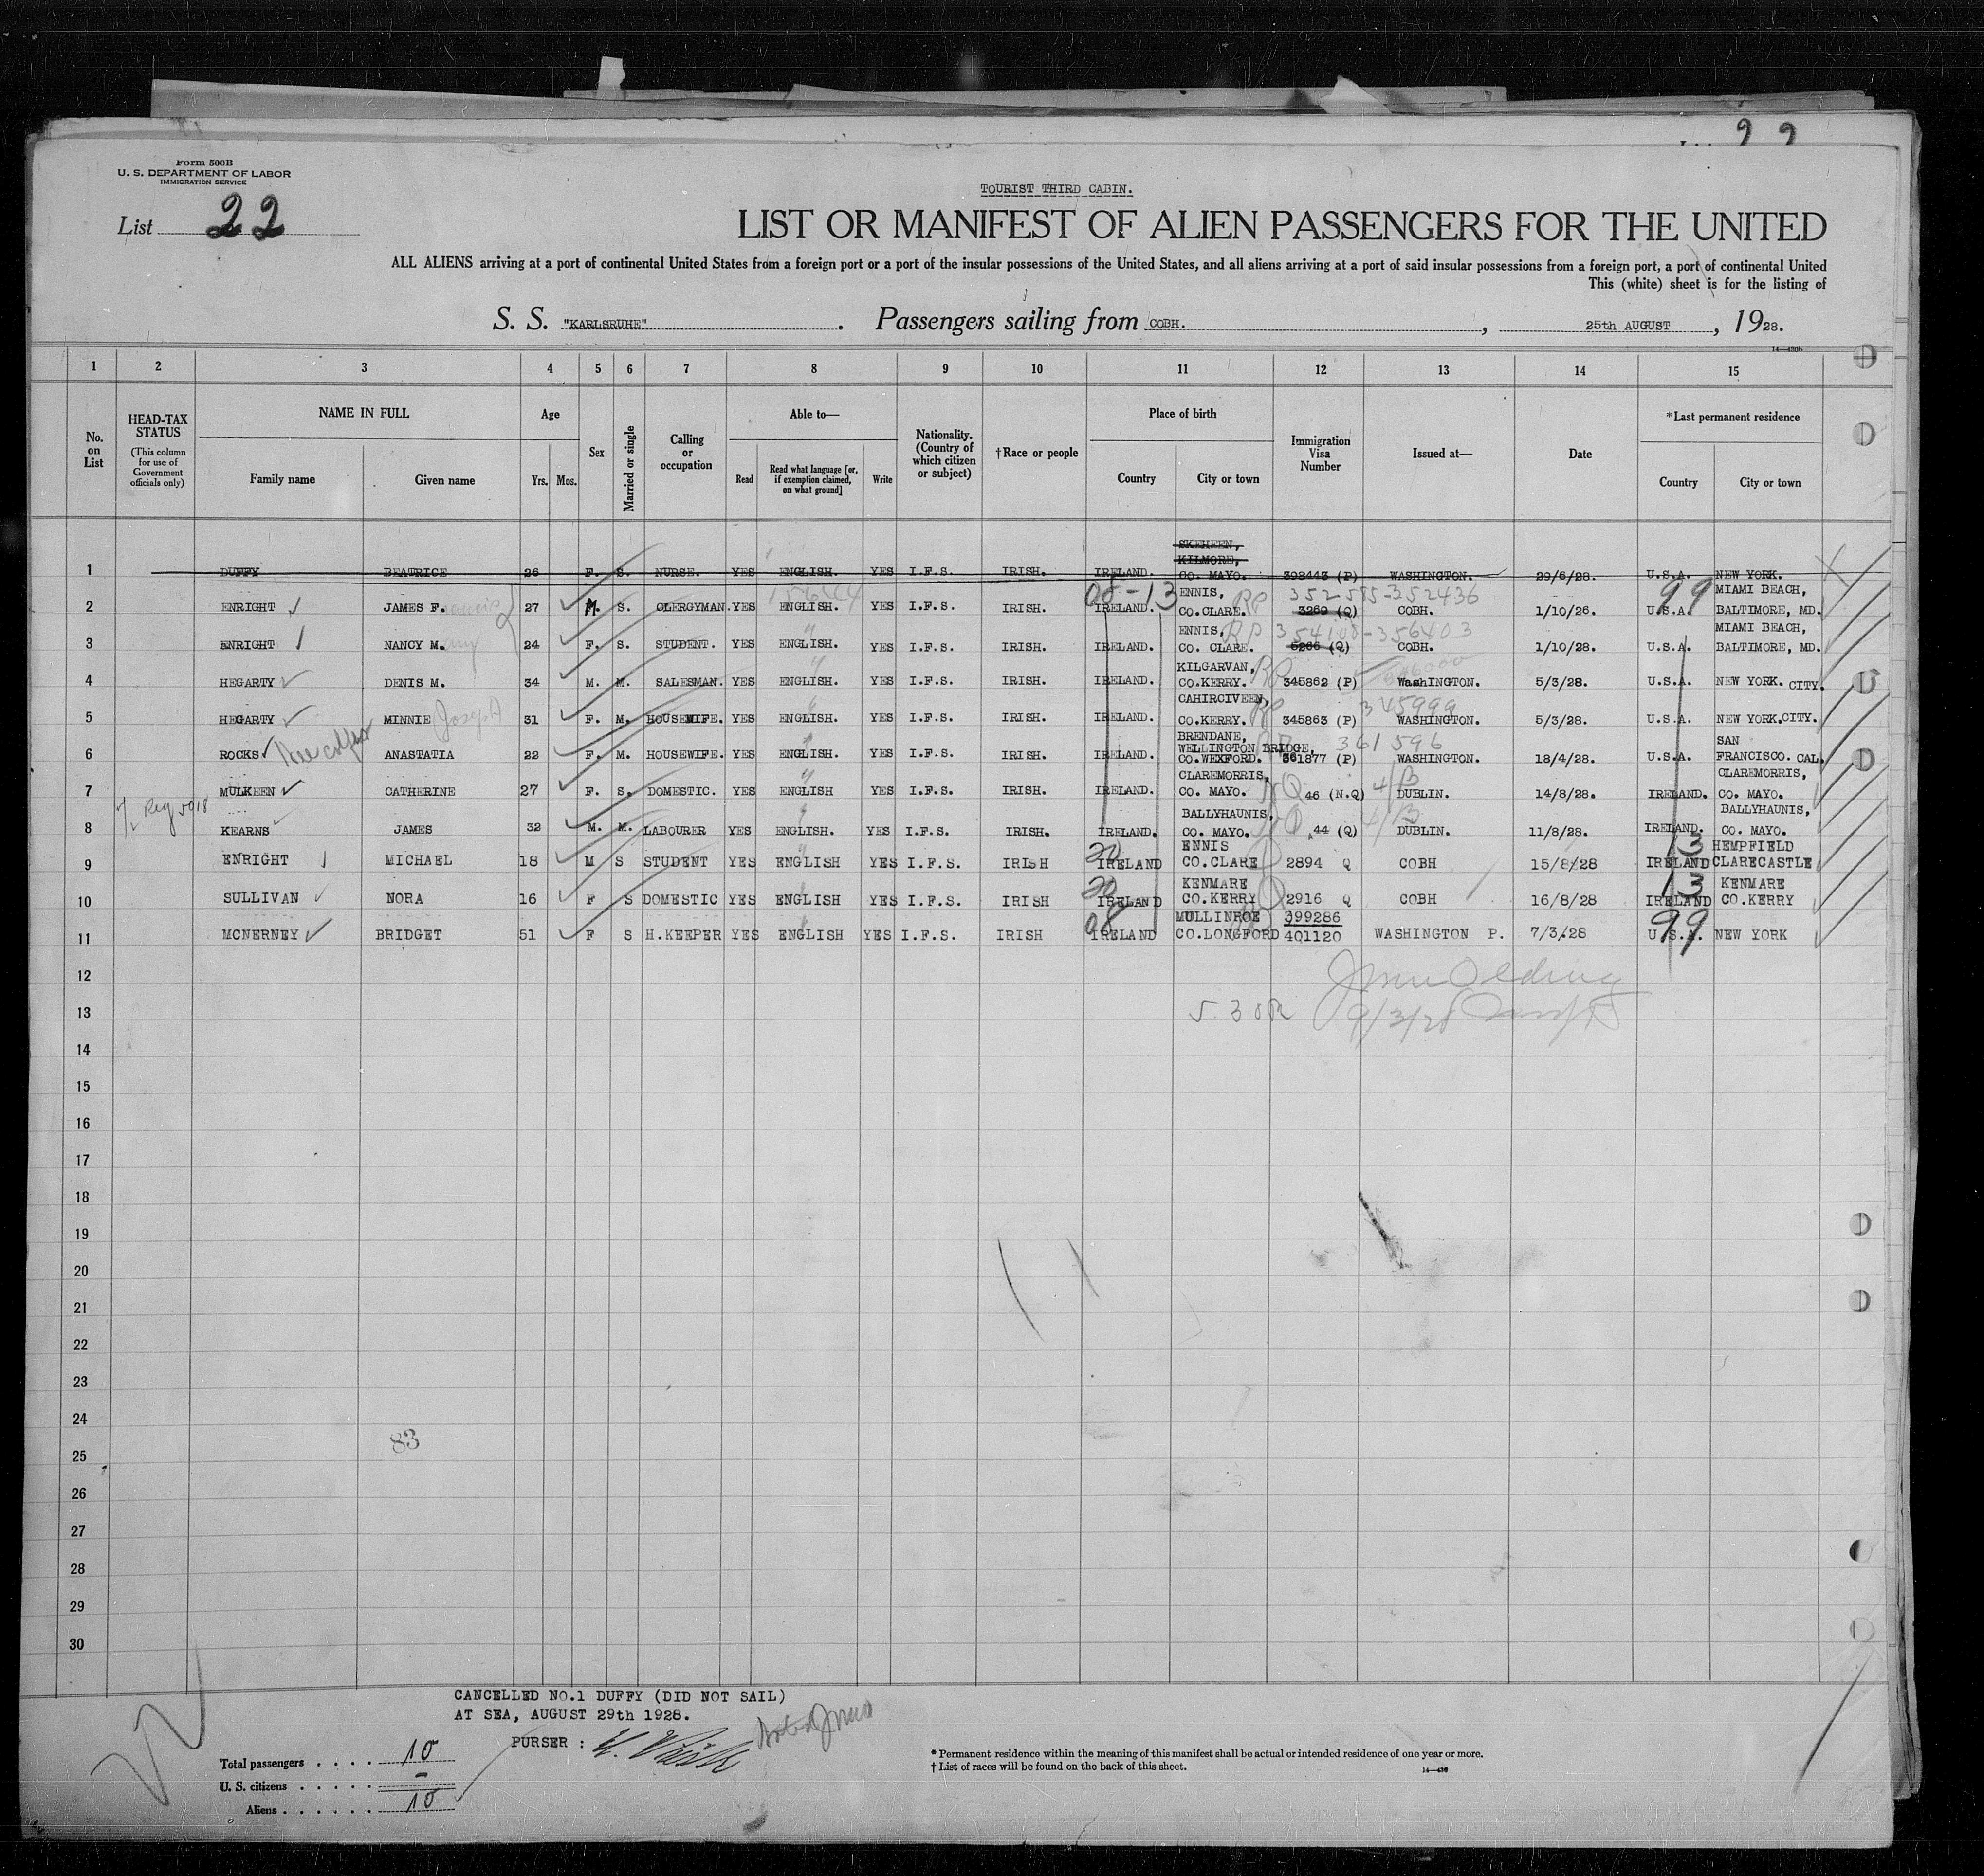 Form 500B
U. S. DEPARTMENT OF LABOR
IMMIGRATION SERVICE
List 22
TOURIST THIRD CABIN.
LIST OR MANIFEST OF ALIEN PASSENGERS FOR THE UNITED
ALL ALIENS arriving at a port of continental United States from a foreign port or a port of the insular possessions of the United States, and all aliens arriving at a port of said insular possessions from a foreign port, a port of continental United
This (white) sheet is for the listing of
S. S. "KARLSRUHE" . Passengers sailing from COBH. , 25th AUGUST , 1928.
1 2 3 4 5 6 7 8 9 10 11 12 13 14 15
No. on List
HEAD-TAX STATUS
(This column for use of Government officials only)
NAME IN FULL
Family name Given name
Age
Yrs. Mos.
Sex
Married or single
Calling or occupation
Able to—
Read Read what language [or, if exemption claimed, on what ground] Write
Nationality. (Country of which citizen or subject)
†Race or people
Place of birth
Country City or town
Immigration Visa Number
Issued at—
Date
*Last permanent residence
Country City or town
1 DUFFY BEATRICE 26 F. S. NURSE. YES ENGLISH. YES I.F.S. IRISH. IRELAND. SKEHEEN, KILMORE, CO. MAYO. 398443 (P) WASHINGTON. 29/6/28. U.S.A. NEW YORK.
2 ENRIGHT JAMES F. 27 M. S. CLERGYMAN. YES ENGLISH. YES I.F.S. IRISH. IRELAND. ENNIS, CO.CLARE. RP 3269 (Q) 352585-352436 COBH. 1/10/26. U.S.A 99 MIAMI BEACH, BALTIMORE, MD.
3 ENRIGHT NANCY M. 24 F. S. STUDENT. YES ENGLISH. YES I.F.S. IRISH. IRELAND. ENNIS, CO. CLARE. RP (Q) COBH. 1/10/28. U.S.A. MIAMI BEACH, BALTIMORE, MD.
4 HEGARTY DENIS M. 34 M. M. SALESMAN. YES ENGLISH. YES I.F.S. IRISH. IRELAND. KILGARVAN, CO.KERRY. RP 345862 (P) WasHINGTON. 5/3/28. U.S.A. NEW YORK CITY.
5 HEGARTY MINNIE Joseph 31 F. M. HOUSEWIFE. YES ENGLISH. YES I.F.S. IRISH. IRELAND. CAHIRCIVEEN, CO.KERRY. RP 345863 (P) 345999 WASHINGTON. 5/3/28. U.S.A. NEW YORK.CITY.
6 ROCKS ANASTATIA 22 F. M. HOUSEWIFE. YES ENGLISH. YES I.F.S. IRISH. IRELAND. BRENDANE, WELLINGTON BRIDGE, CO.WEXFORD. 361877 (P) 361596 WASHINGTON. 18/4/28. U.S.A. SAN FRANCISCO. CAL.
7 MULKEEN CATHERINE 27 F. S. DOMESTIC. YES ENGLISH YES I.F.S. IRISH. IRELAND. CLAREMORRIS, CO. MAYO. NQ 46 (N.Q) 4/B DUBLIN. 14/8/28. IRELAND. CLAREMORRIS, CO. MAYO.
8 KEARNS JAMES 32 M. M. LABOURER YES ENGLISH. YES I.F.S. IRISH. IRELAND. BALLYHAUNIS, CO. MAYO. 44 (Q) 4/B DUBLIN. 11/8/28. IRELAND. BALLYHAUNIS, CO. MAYO.
9 ENRIGHT MICHAEL 18 M S STUDENT YES ENGLISH YES I.F.S. IRISH 20 IRELAND ENNIS CO.CLARE 2894 Q COBH 15/8/28 13 IRELAND HEMPFIELD CLARECASTLE
10 SULLIVAN NORA 16 F S DOMESTIC YES ENGLISH YES I.F.S. IRISH 20 IRELAND KENMARE CO.KERRY 2916 Q COBH 16/8/28 13 IRELAND KENMARE CO.KERRY
11 MCNERNEY BRIDGET 51 F S H.KEEPER YES ENGLISH YES I.F.S. IRISH 08 IRELAND MULLINROE CO.LONGFORD 399286 401120 WASHINGTON P. 7/3.28 U.S.A. 99 NEW YORK
12
13
14
15
16
17
18
19
20
21
22
23
24
83
25
26
27
28
29
30
CANCELLED NO.1 DUFFY (DID NOT SAIL)
AT SEA, AUGUST 29th 1928.
PURSER :
Total passengers . . . . 10
U. S. citizens . . . . . –
Aliens . . . . . . 10
* Permanent residence within the meaning of this manifest shall be actual or intended residence of one year or more.
† List of races will be found on the back of this sheet.